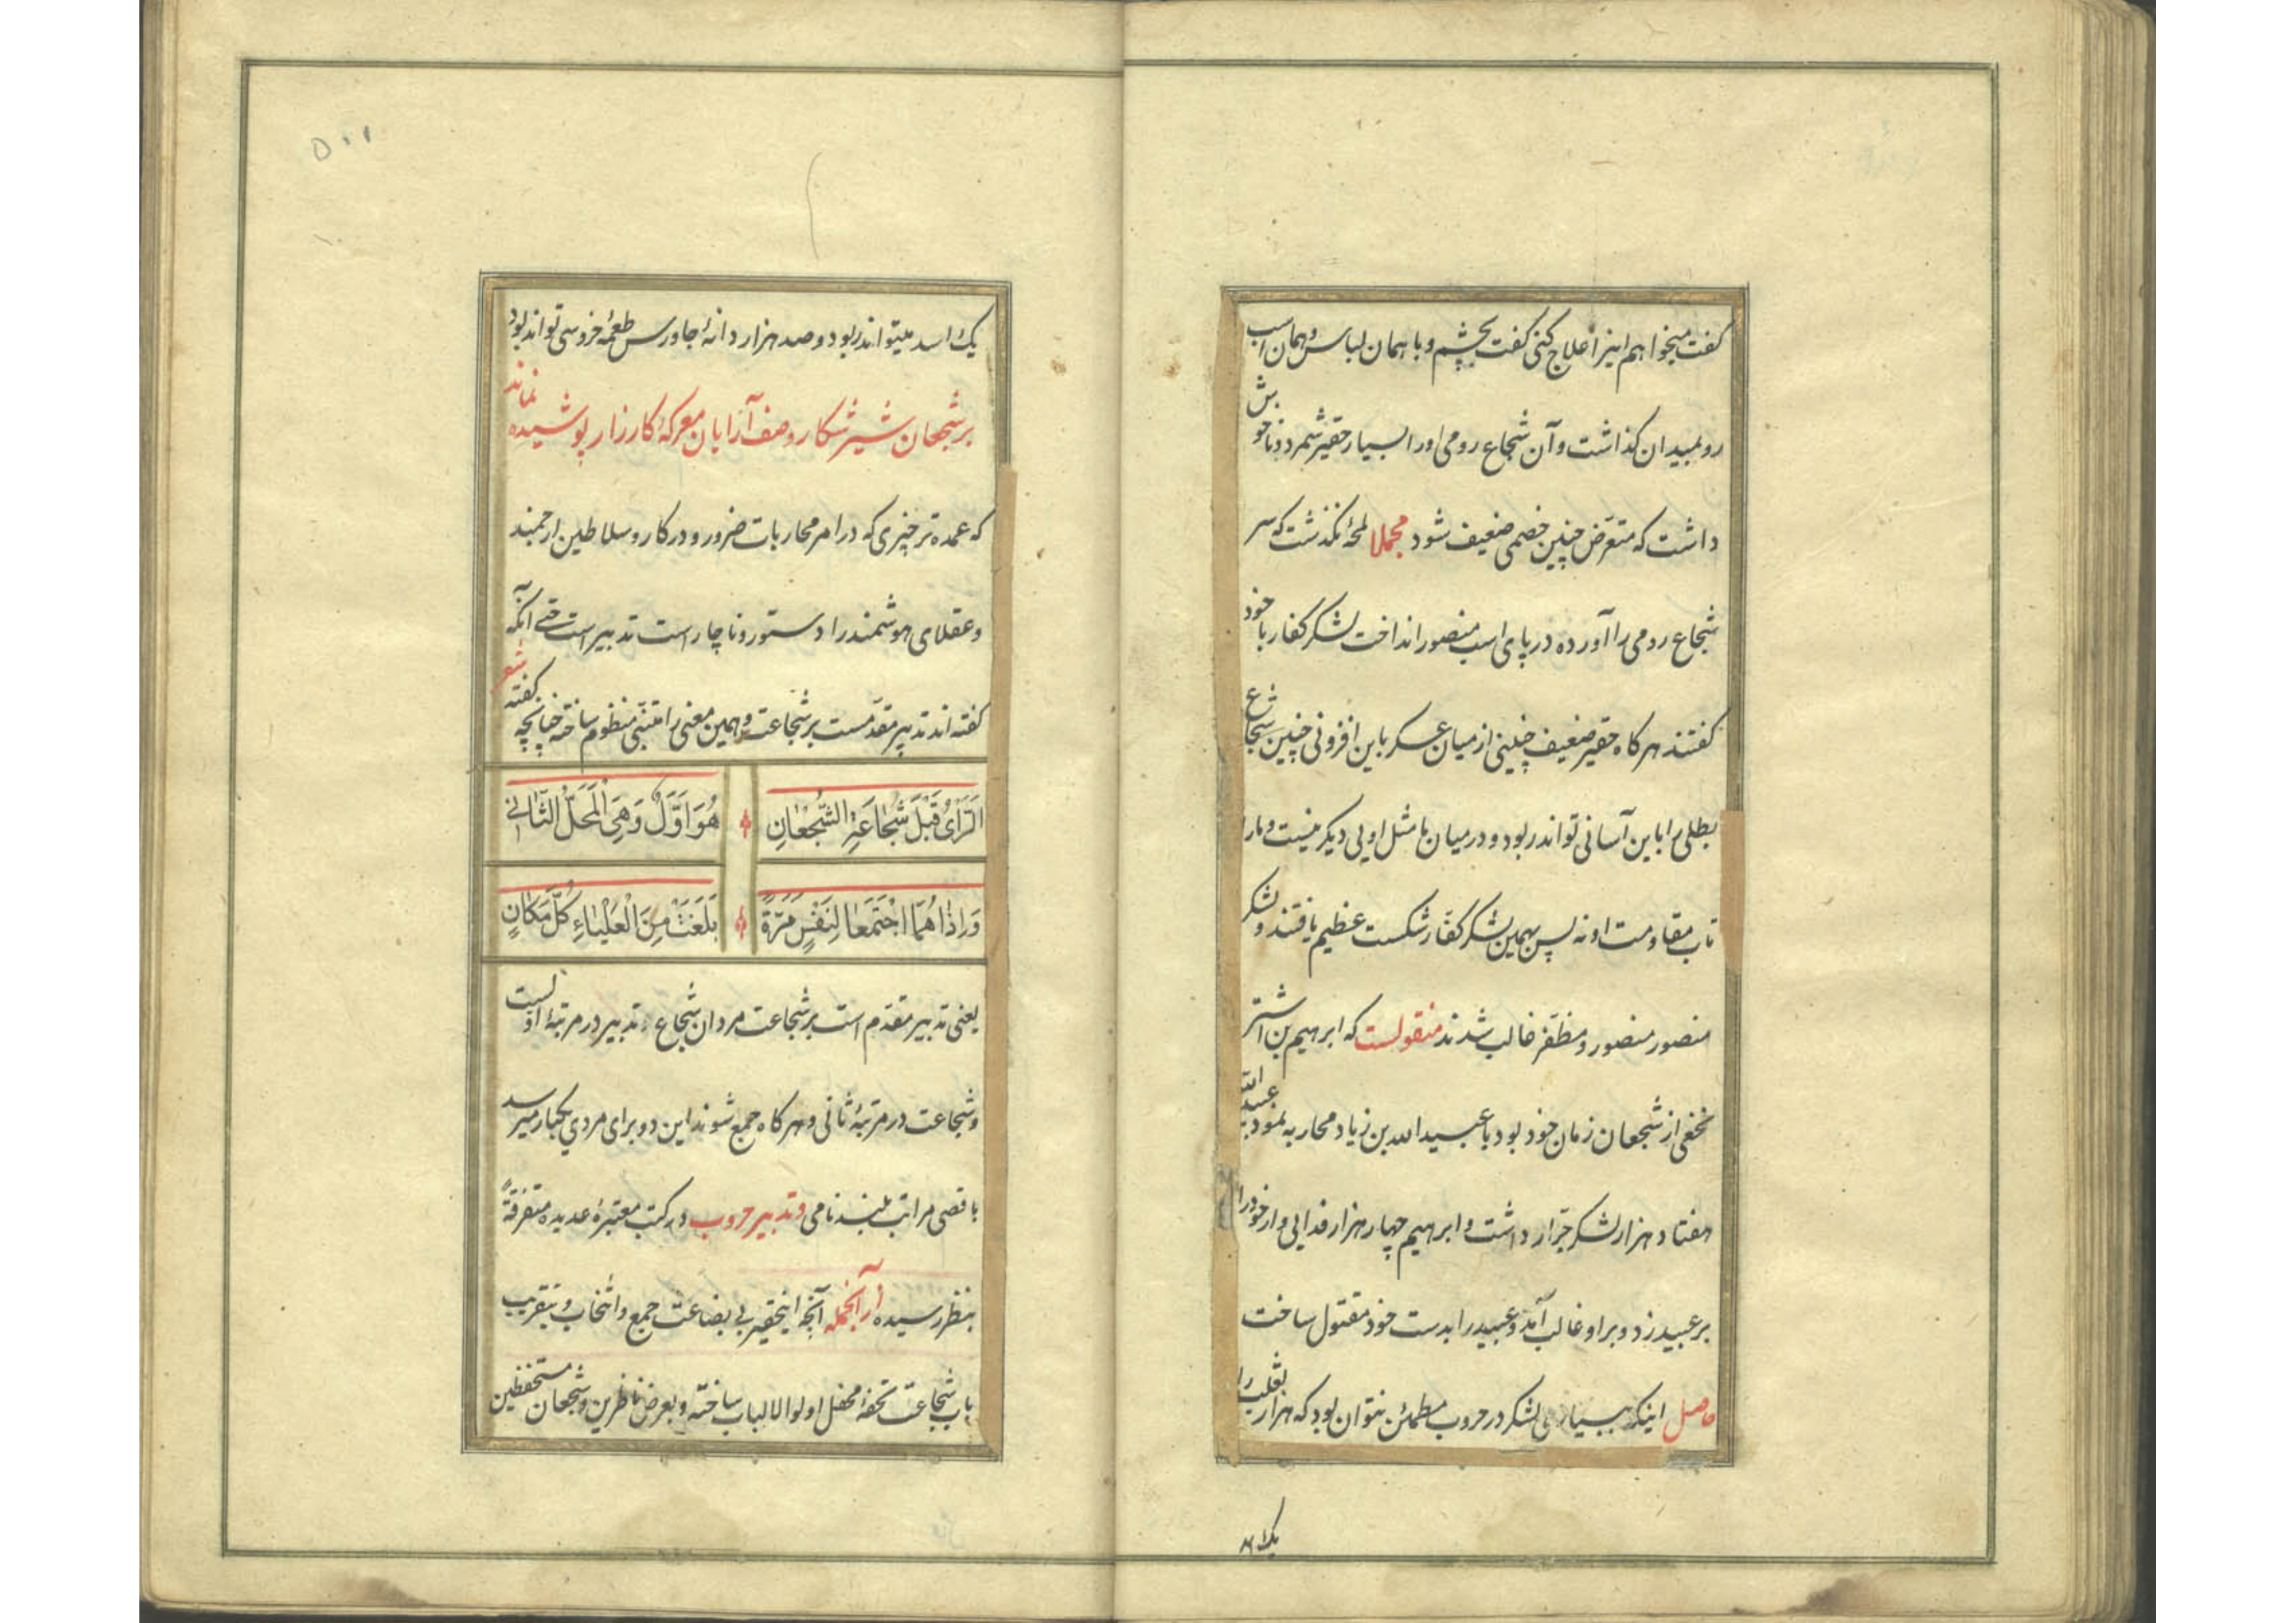 گفت میخواهم اینرا علاج کنی گفت بچشم و با همان لباس و همان اسب
رو بمیدان گذاشت و آن شجاع رومی او را بسیار حقیر شمرد و ناخوش
داشت که متعرّض چنین خصمی ضعیف شود مجملا لمحهٔ نگذشت که سر
شجاع رومی را آورده در پای اسب منصور انداخت لشکر کفار با خود
گفتند هرگاه حقیر ضعیف چنینی از میان عسکر باین افزونی چنین شجاع
بطلی را باین آسانی تواند ربود و در میان ما مثل اویی دیگر نیست و ما را
تاب مقاومت او نه پس بهمین لشکر کفّار شکست عظیم یافتند و لشکر
منصور منصور و مظفّر غالب شدند منقولست که ابرهیم بن اشتر
نخعی از شجعان زمان خود بود با عبیدالله بن زیاد محاربه نمود عبید الله
هفتاد هزار لشکر جرّار داشت و ابرهیم چهار هزار فدایی وار خود را
بر عبید زد و بر او غالب آمد و عبید را بدست خود مقتول ساخت
حاصل اینکه ببسیاری لشکر در حروب مطمئن نتوان بود که هزار ثعلب را
یک اسد
۵۰۱
یک اسد میتواند ربود و صد هزار دانهٔ جاورس طعمهٔ خروسی تواند بود
بر شجعان شیر شکار و صف آرایان معرکهٔ کارزار پوشیده نماند
که عمده تر چیزی که در امر محاربات ضرور و در کار و سلاطین ارجمند
و عقلای هوشمند را دستور و ناچار است تدبیر است حتی آنکه
گفته اند تدبیر مقدّمست بر شجاعت و همین معنی را متنبّی منظوم ساخته چنانچه گفته شعر
اَلرَّأیُ قَبْلَ شَجٰاعَةِ الشُّجْعٰانِ هُوَ اَوَّلٌ وَهِیَ الْمَحَلُّ الثّٰانی
وَاِذٰا هُمَا اجْتَمَعٰا لِنَفْسٍ مَرَّةً بَلَغَتْ مِنَ الْعَلْیٰاءِ کُلَّ مَکٰانٍ
یعنی تدبیر مقدّم است بر شجاعت مردان شجاع تدبیر در مرتبهٔ اوّلست
و شجاعت در مرتبهٔ ثانی و هرگاه جمع شوند این دو برای مردی یکبار میرسد
باقصی مراتب بلند نامی و تدبیر حروب در کتب معتبرهٔ عدیده متفرّقةً
بنظر رسیده از آنجمله آنچه اینحقیر بی بضاعت جمع و انتخاب و بتقریب
باب شجاعت تحفهٔ محفل اولوالالباب ساخته و بعرض ناظرین و شجعان مستحفظین